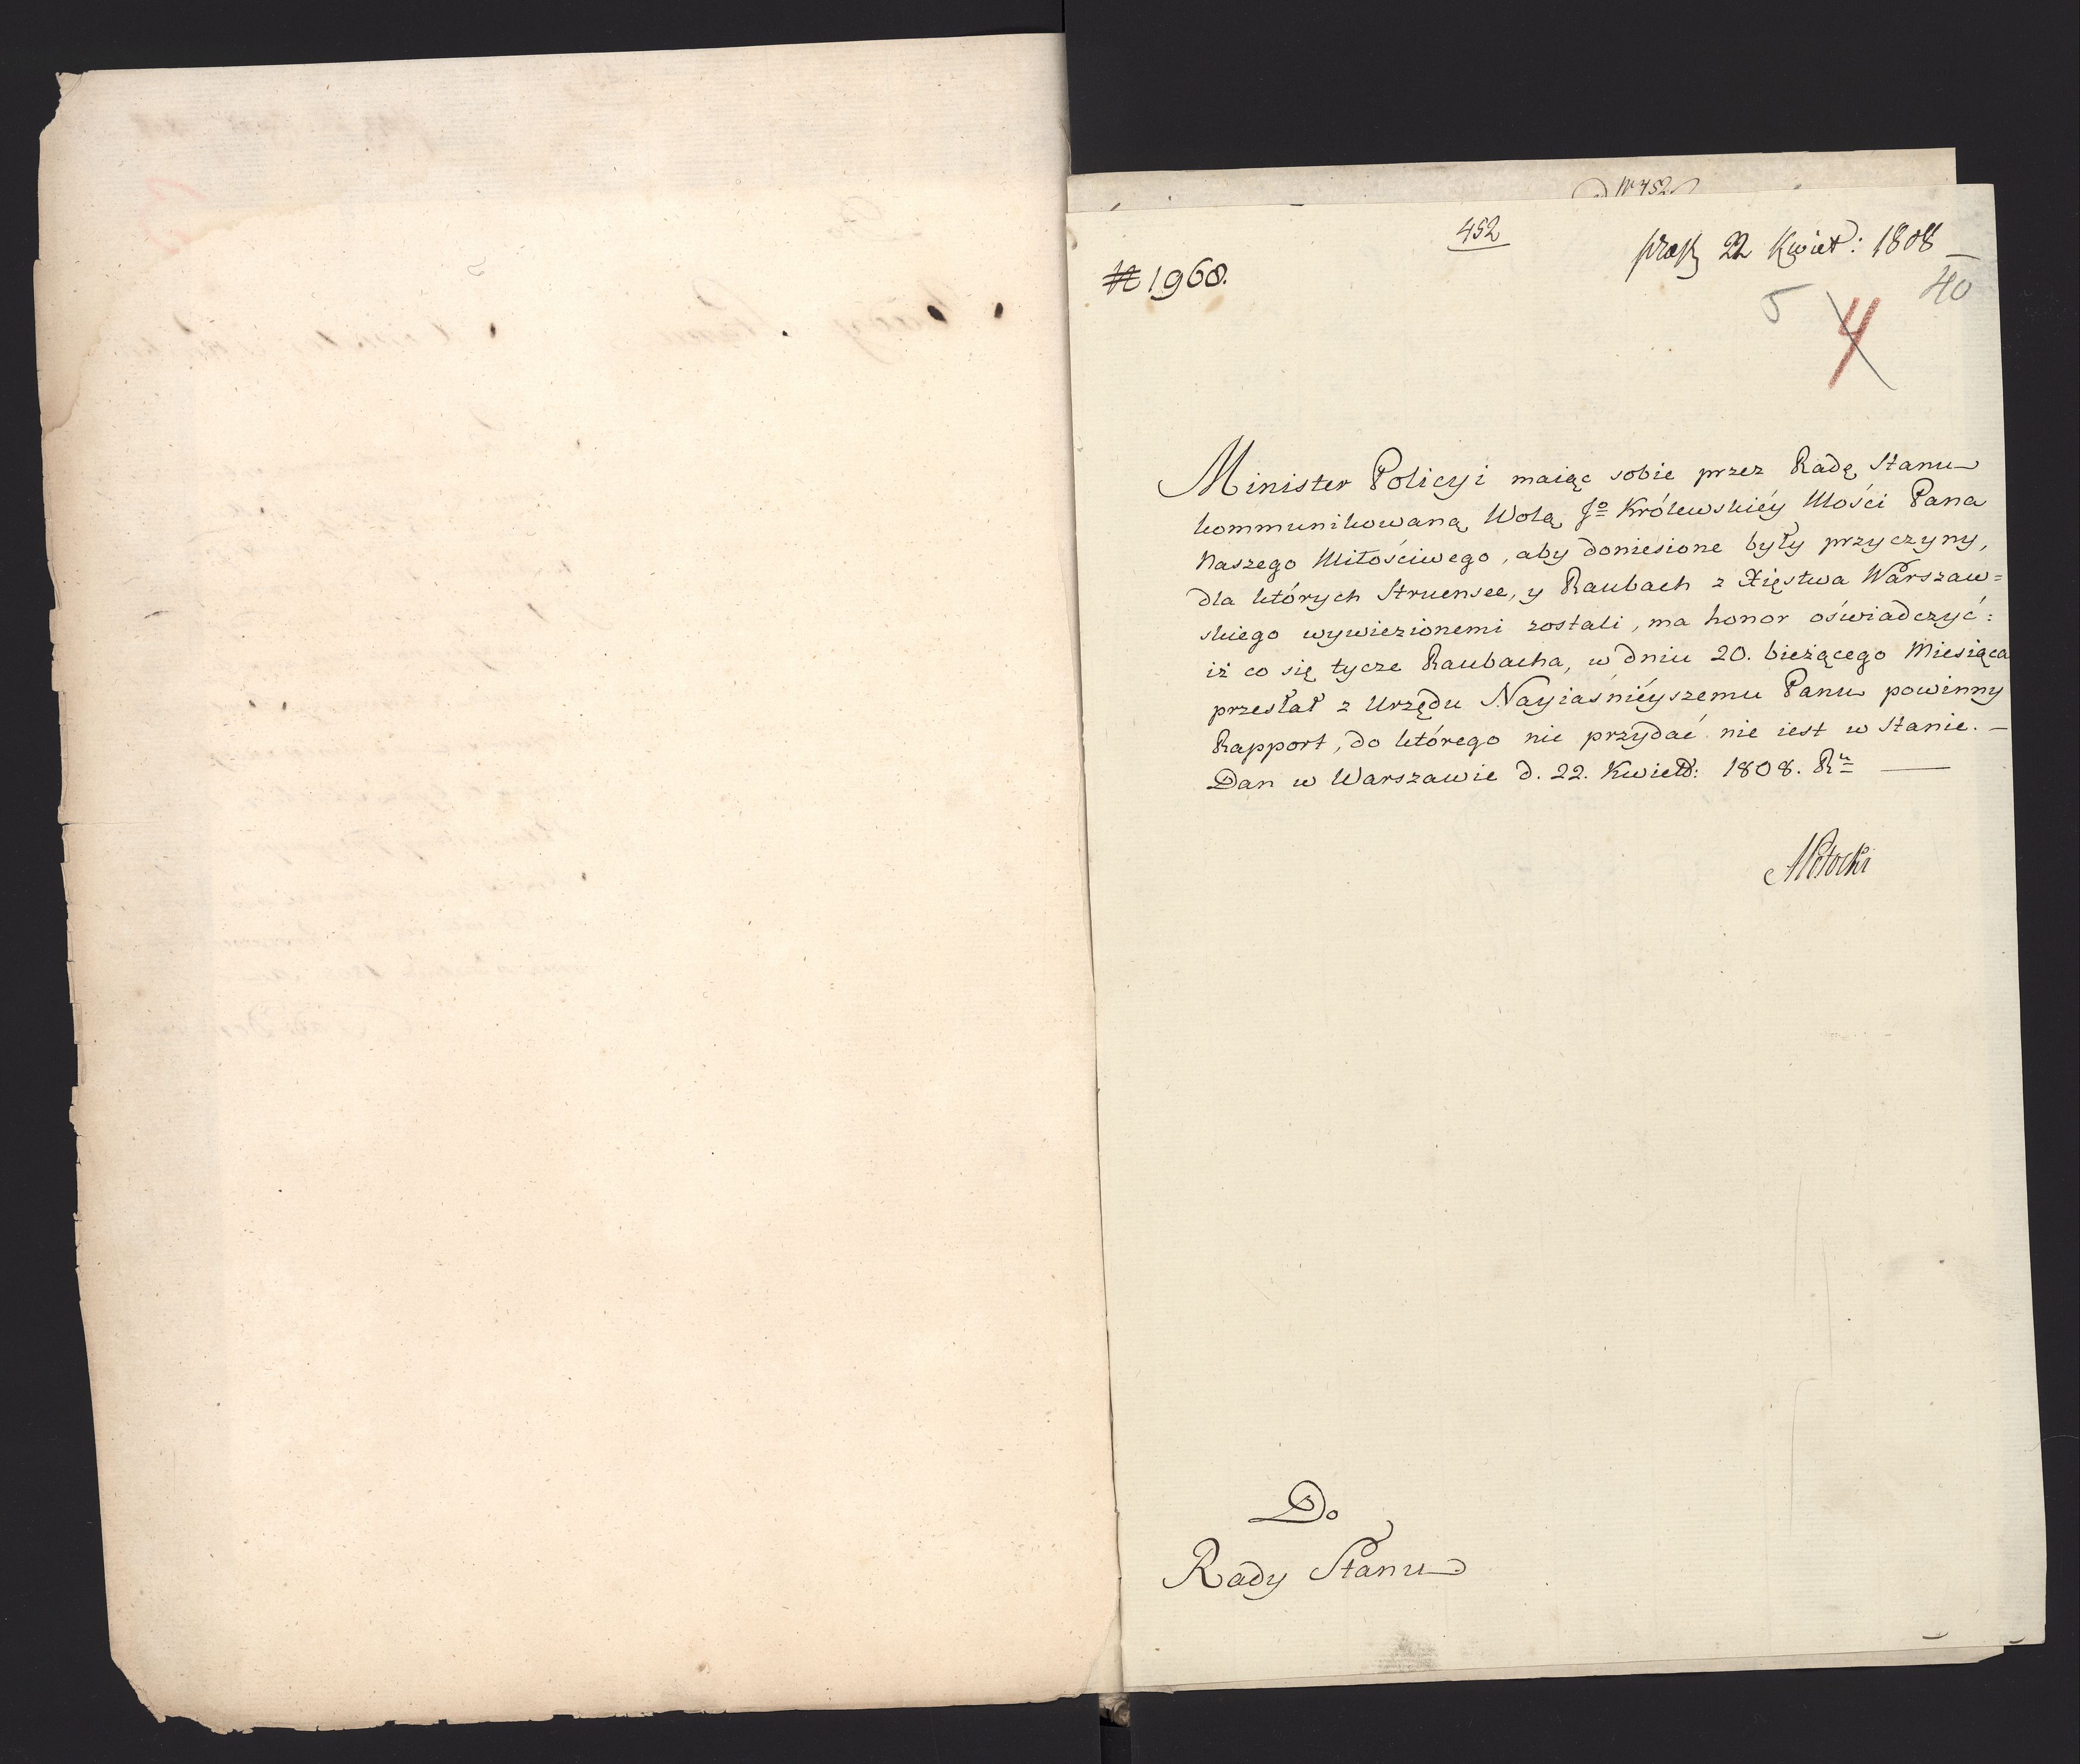 N 452
452
praes 22 Kwiet: 1808
№ 1968.
40
5 4
Minister Policyi maiąc sobie przez Radę Stanu
kommunikowaną Wolą Jº Królewskiéy Mości Pana
Naszego Miłościwego, aby doniesione były przyczyny,
dla których Struensee, y Raubach z Xięstwa Warszaw=
skiego wywiezionemi zostali, ma honor oświadczyć:
iż co się tycze Raubacha, w dniu 20. bieżącego Miesiąca
przesłał z Urzędu Nayiaśniéyszemu Panu powinny
Rapport, do którego nic przydać nie iest w Stanie. —
Dan w Warszawie d. 22. Kwiet: 1808. Rᵘ —
APotocki
Do
Rady Stanu